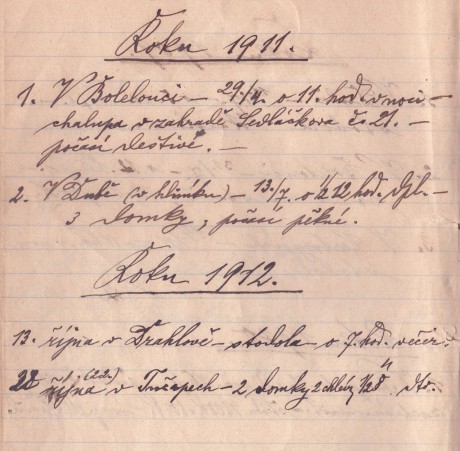 Roku 1911.
1. V Bolelouci – 29./4. o 11. hod. v noci –
chalupa v zahradě Sedláčkova čs. 21. –
počasí deštivé. –
2. V Dubě (v hliníku) – 13./7. o ½12 hod. dpl. –
3 domky, počasí pěkné.
Roku 1912.
13. října v Drahlově – stodola o 7. hod. večer.
22 října v Tučapech – 2 domky 2 chlévy ½8 " dto.